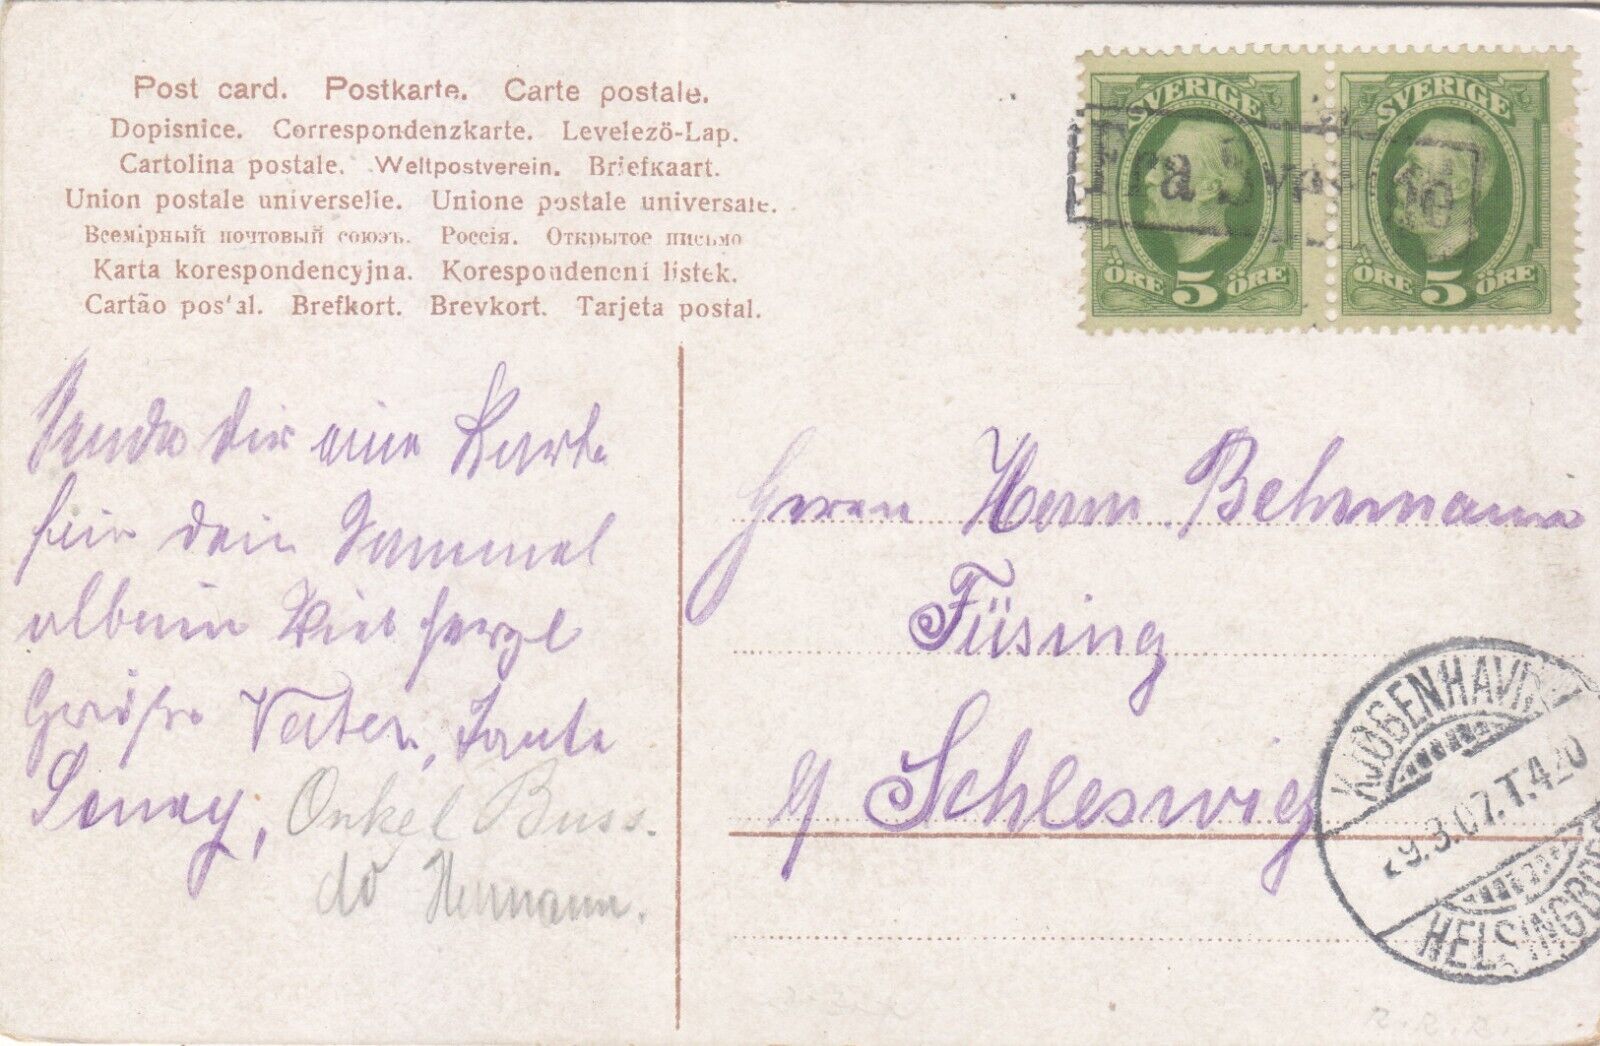 Post card. Postkarte. Carte postale.
Dopisnice. Correspondenzkarte. Levelezö-Lap.
Cartolina postale. Weltpostverein. Briefkaart.
Union postale universelle. Unione postale universale.
Всемірный почтовый союзъ. Россія. Открытое письмо
Karta korespondencyjna. Korespondencní listek.
Cartão pos'al. Brefkort. Brevkort. Tarjeta postal.
SVERIGE SVERIGE
Fra Sverige
ÖRE 5 ÖRE ÖRE 5 ÖRE
Sende dir eine Karte
für dein Sammel
album Viel herzl
Grüße Vater, Tante
Onkel Buss.
do Hermann.
Herrn Herm. Behrmann
Füsing
Schleswig
KJØBENHAVN
29.3.07. T.4 20
HELSINGBORG
R.R.R.